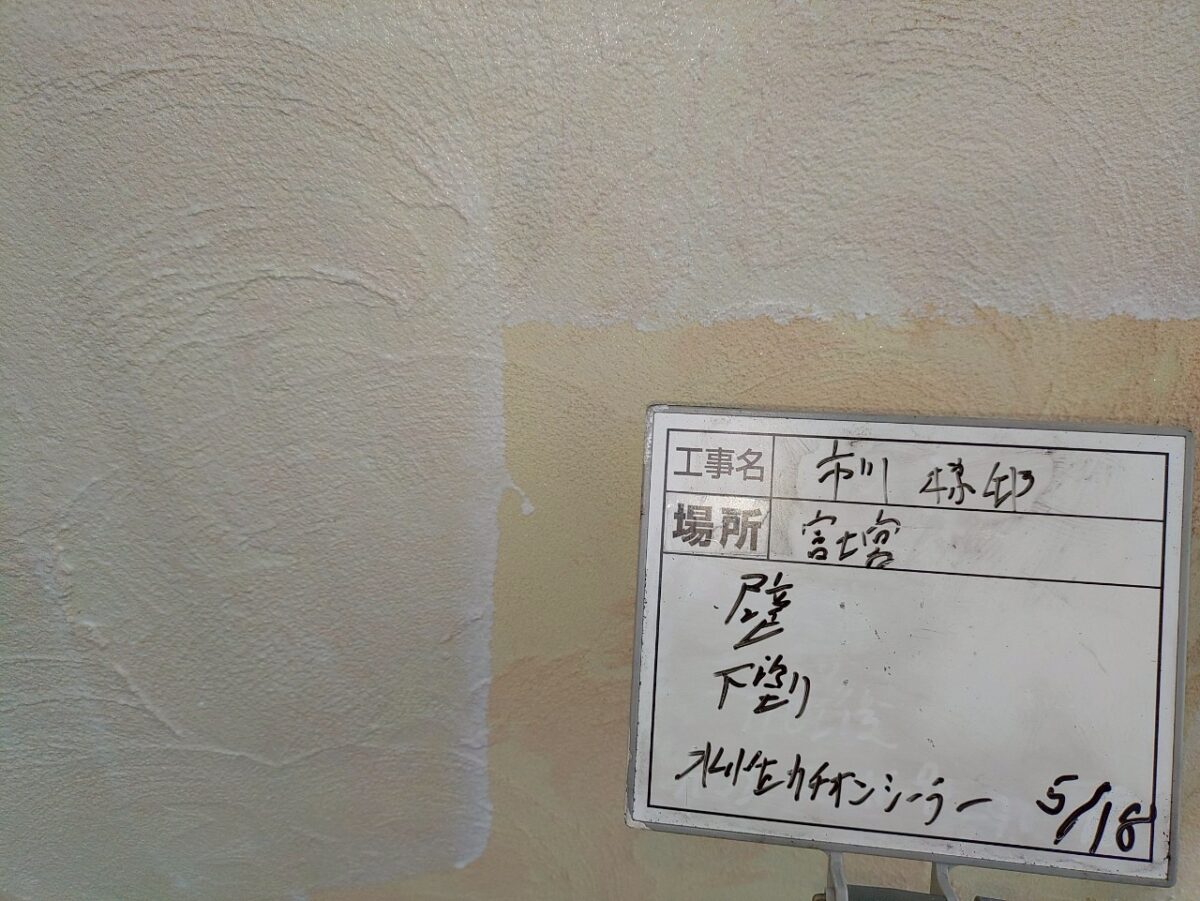 工事名 市川 様邸
場所 富士宮
壁
下塗り
水性カチオンシーラー 5/18